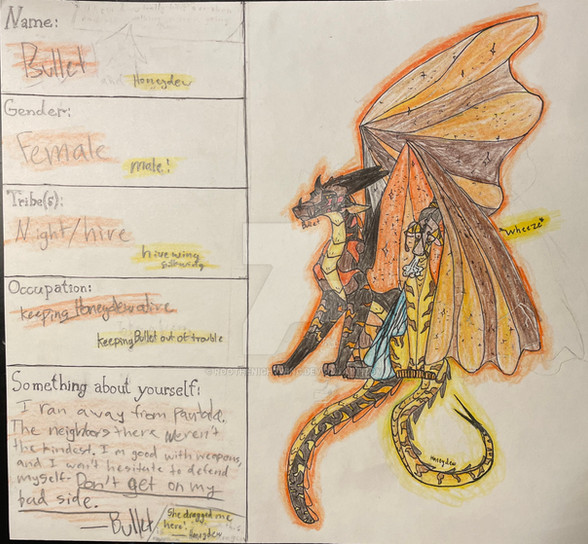 Name:
Bullet
and Honeydew
Gender:
Female
male!
Tribe(s):
Night/hive
hivewing
Occupation:
keeping Honeydew alive
keeping Bullet out of trouble
Something about yourself:
I ran away from Pantala.
The neighbors there weren't
the kindest. I'm good with weapons,
and I won't hesitate to defend
myself. Don't get on my
bad side.
—Bullet
She dragged me
here!
— Honeydew
Bullet
*Wheeze*
Honeydew